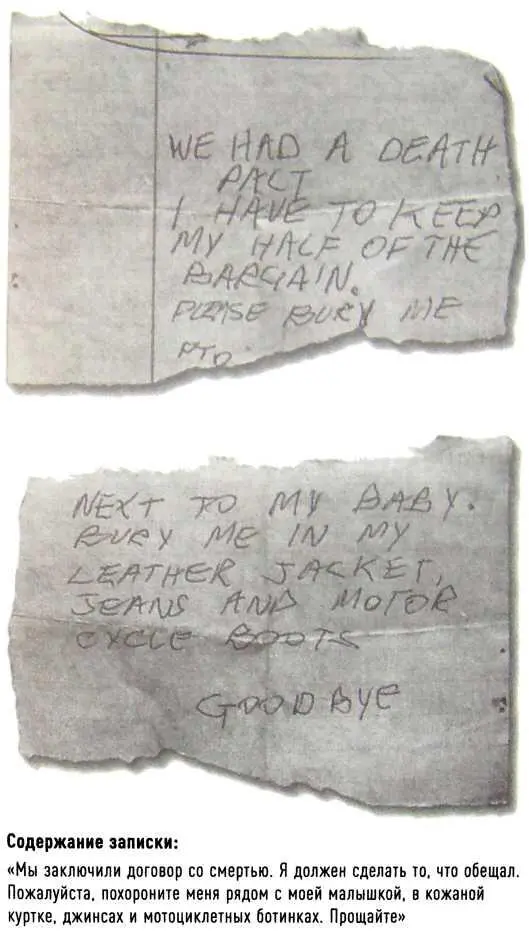 WE HAD A DEATH
PACT
I HAVE TO KEEP
MY HALF OF THE
BARGAIN.
PLEASE BURY ME
PTO.
NEXT TO MY BABY.
BURY ME IN MY
LEATHER JACKET,
JEANS AND MOTOR
CYCLE BOOTS
GOODBYE
Содержание записки:
«Мы заключили договор со смертью. Я должен сделать то, что обещал.
Пожалуйста, похороните меня рядом с моей малышкой, в кожаной
куртке, джинсах и мотоциклетных ботинках. Прощайте»